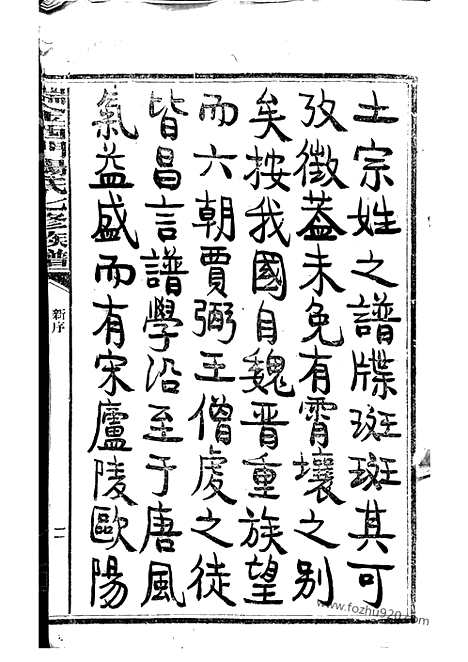 土宗姓之譜牒斑斑其可
攷徵蓋未免有霄壤之别
矣按我國自魏晉重族望
而六朝賈弼王僧虔之徒
皆昌言譜學沿至于唐風
氣益盛而有宋廬陵歐陽
氏七修族譜
新序
二
www.fozhu920.com